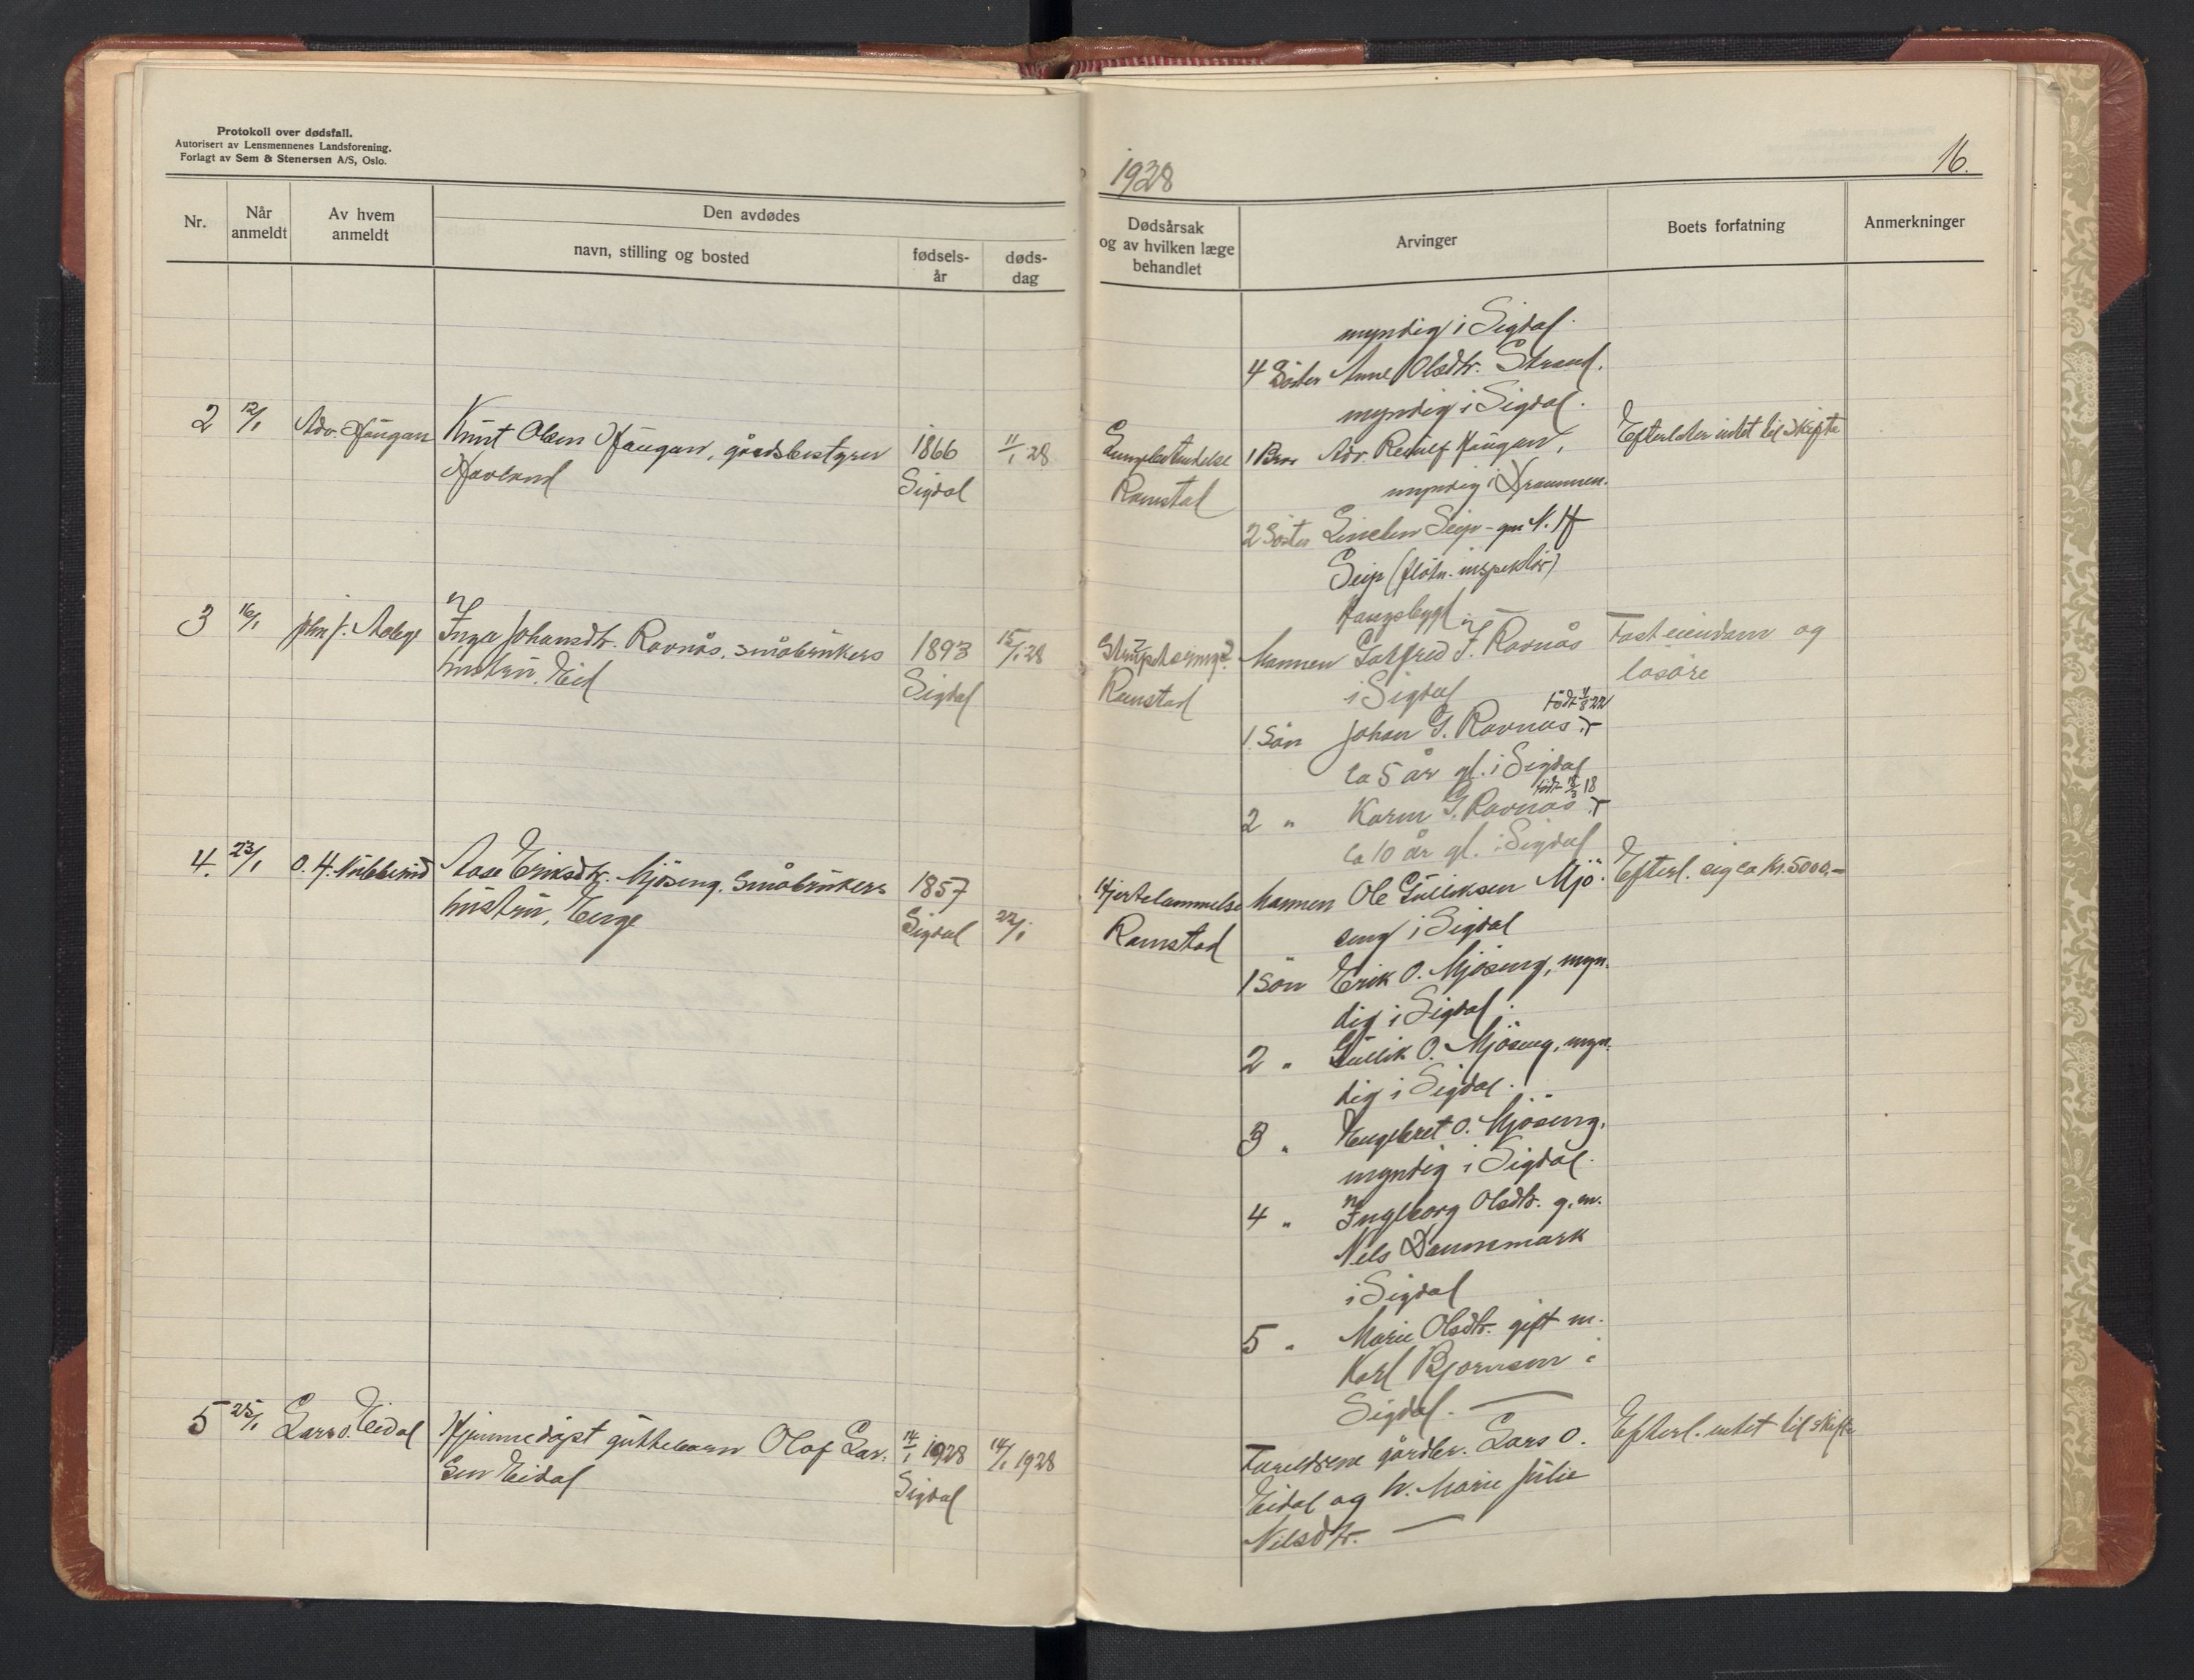 Protokoll over dødsfall.
Autorisert av Lensmennenes Landsforening.
Forlagt av Sem & Stenersen A/S, Oslo.
1928
16.
Nr.
Når
anmeldt
Av hvem
anmeldt
Den avdødes
navn, stilling og bosted
fødsels-
år
døds-
dag
Dødsårsak
og av hvilken læge
behandlet
Arvinger
Boets forfatning
Anmerkninger
myndig i Sigdal.
4 Søster Anne Olsdtr. Strand,
myndig i Sigdal.
2 12/1 Adv. Haugan Knut Olsen Haugan, gårdsbestyrer 1866 11/1 28
Hovland Sigdal
Lungebetendelse
Ramstad
1 Bror Adv. Haugan,
myndig i Drammen.
2 Søster Seip - gm N. H
Seip (fløtn. inspektør)
Haugsbygd
Efterlater intet til skifte
3 16/1 Inga Johansdtr. Ravnås, småbrukers 1893 15/1 28
hustru. Eid Sigdal
Ramstad
Mannen Gotfred J. Ravnås
i Sigdal
født 22
1 Søn Johan G. Ravnås
ca 5 år gl. i Sigdal
født 18
2 " Karen G. Ravnås
ca 10 år gl. i Sigdal
Fast eiendom og
løsøre
4. 23/1 O. H. Aase Eriksdtr. Mjøseng. Småbrukers 1857
hustru, Enge Sigdal 22/1
Hjertelammelse
Ramstad
Mannen Ole Gulliksen Mjø-
seng i Sigdal
1 Søn Erik O. Mjøseng, myn-
dig i Sigdal.
2 " Gullik O. Mjøseng, myn-
dig i Sigdal.
3 " Engebret O. Mjøseng,
myndig i Sigdal.
4 " Ingeborg Olsdtr. g.m.
Nels Dannemark
i Sigdal
5 " Marie Olsdtr. gift m.
Karl Bjørnsen i
Sigdal. —
Efterl. sig ca kr. 5000,-
5 25/1 Lars O. Eidal Hjemmedøpt guttebarn Olaf Lar- 14/1 1928 14/1 1928
sen Eidal Sigdal
Foreldrene gårdbr. Lars O.
Eidal og h. Marie Julie
Nilsdtr. —
Efterl. intet til skifte